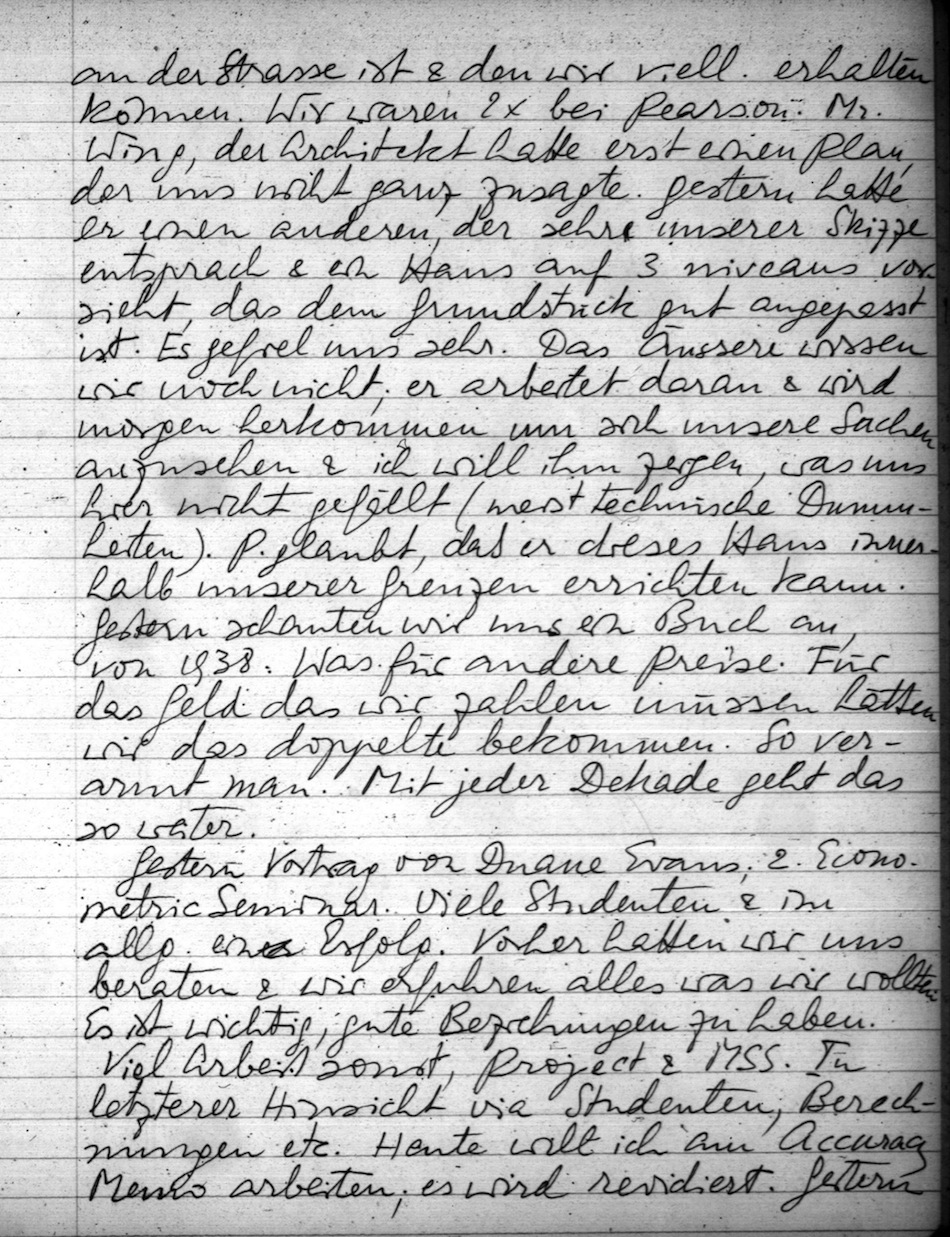 an der Strasse ist & den wir viell. erhalten
können. Wir waren 2x bei Pearson. Mr.
Wing, der Architekt hatte erst einen Plan,
der uns nicht ganz zusagte. Gestern hatte
er einen anderen, der sehr unserer Skizze
entsprach & ein Haus auf 3 niveaus vor-
sieht, das dem Grundstück gut angepasst
ist. Es gefiel uns sehr. Das Äussere wissen
wir noch nicht; er arbeitet daran & wird
morgen herkommen um sich unsere Sachen
anzusehen & ich will ihm zeigen, was uns
hier nicht gefällt (meist technische Dumm-
heiten). P. glaubt, daß er dieses Haus inner-
halb unserer Grenzen errichten kann.
Gestern schauten wir uns ein Buch an,
von 1938: Was für andere Preise. Für
das Geld das wir zahlen müssen hätten
wir das doppelte bekommen. So ver-
armt man. Mit jeder Dekade geht das
so weiter.
Gestern Vortrag von Duane Evans, 2. Econo-
metric Seminar. Viele Studenten & im
allg. ein Erfolg. Vorher hatten wir uns
beraten & wir erfuhren alles was wir wollten.
Es ist wichtig, gute Beziehungen zu haben.
Viel Arbeit sonst, Project & MSS. In
letzterer Hinsicht via Studenten, Berech-
nungen etc. Heute will ich am Accuracy
Memo arbeiten; es wird revidiert. Gestern